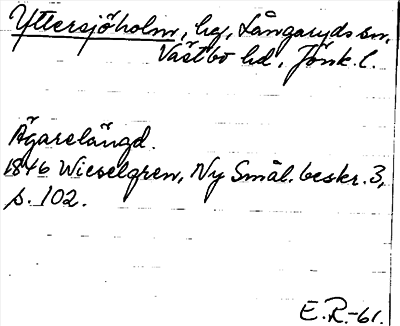 Yttersjöholm, hg, Långaryds sn,
Västbo hd, Jönk. l.
Ägarelängd.
1846 Wieselgren, Ny Smål. beskr. 3,
s. 102.
E.R.-61.